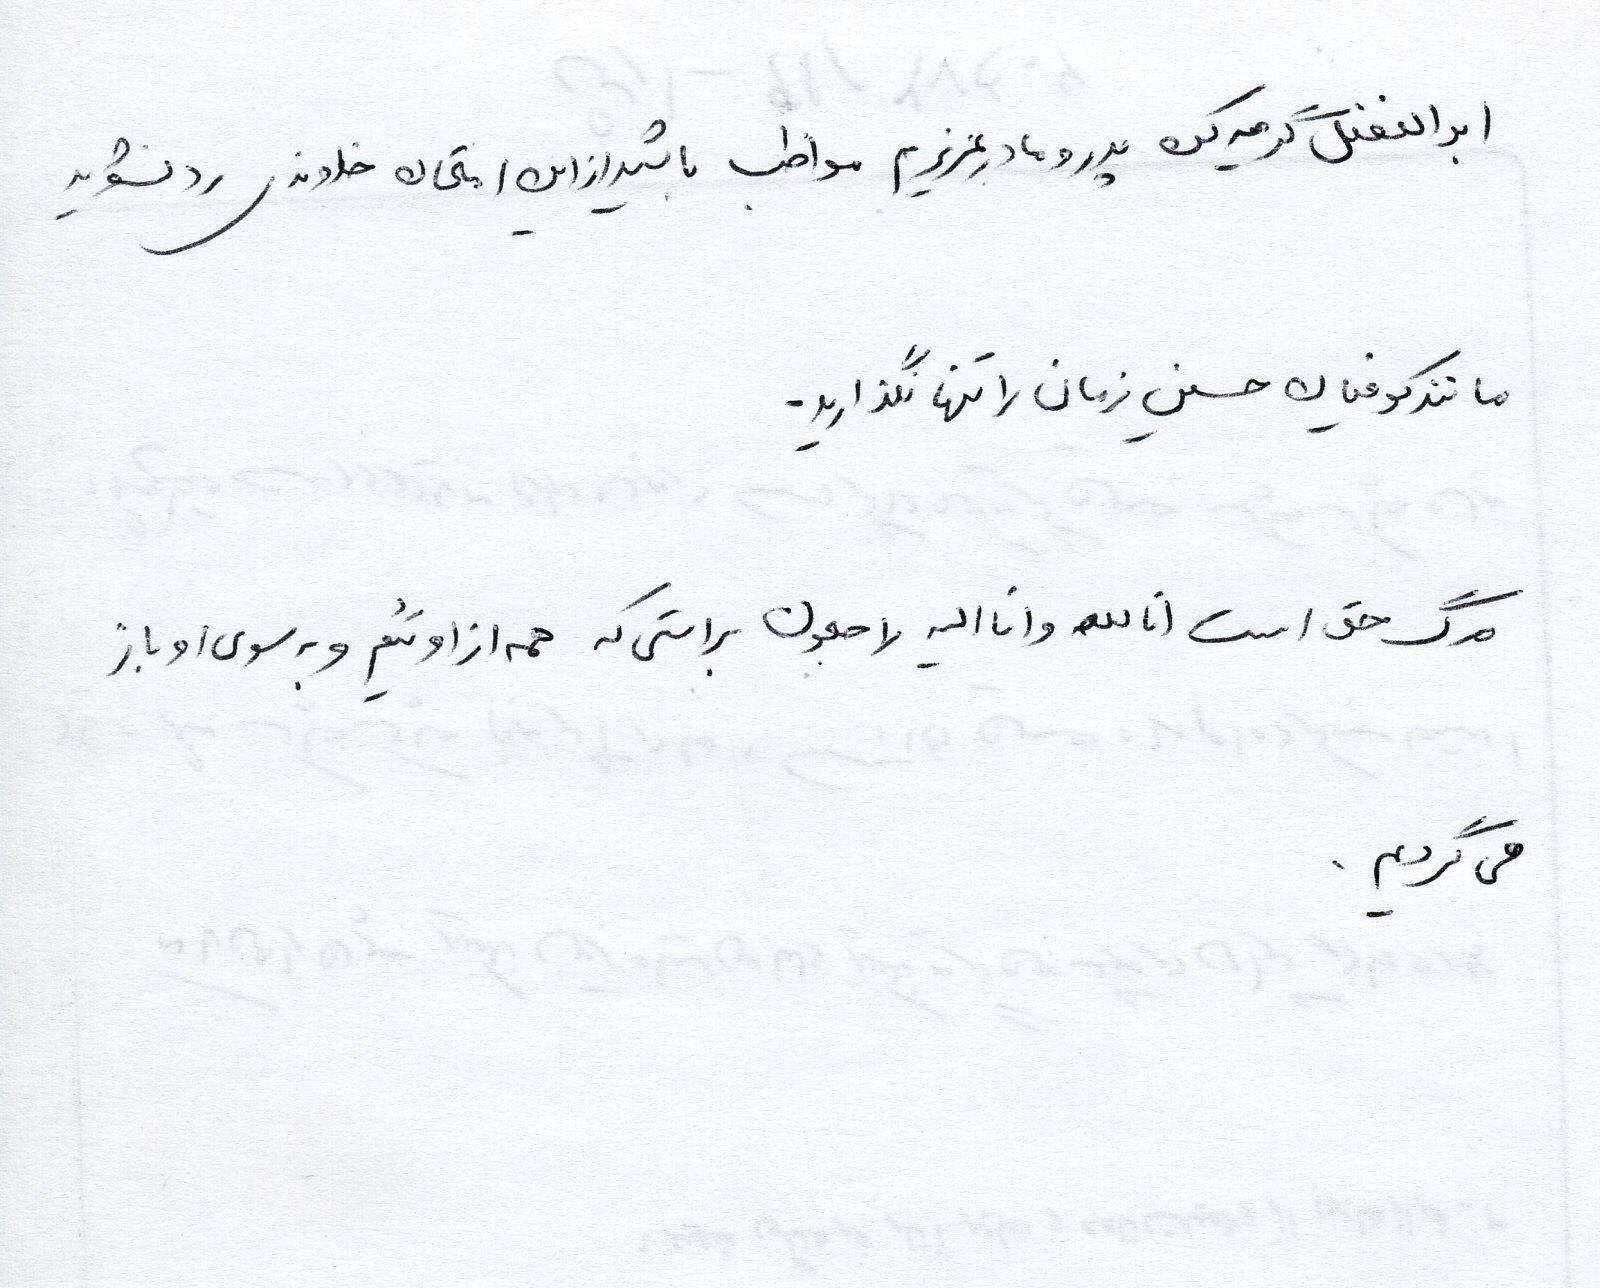 ابوالفضل گرمه‌یکن پدر و مادر عزیزم مواظب باشید از این امتحان خداوندی رد نشوید
مانند کوفیان حسین زمان را تنها نگذارید.
مرگ حق است انا لله و انا الیه راجعون براستی که همه از اوئیم و به سوی او باز
می گردیم.